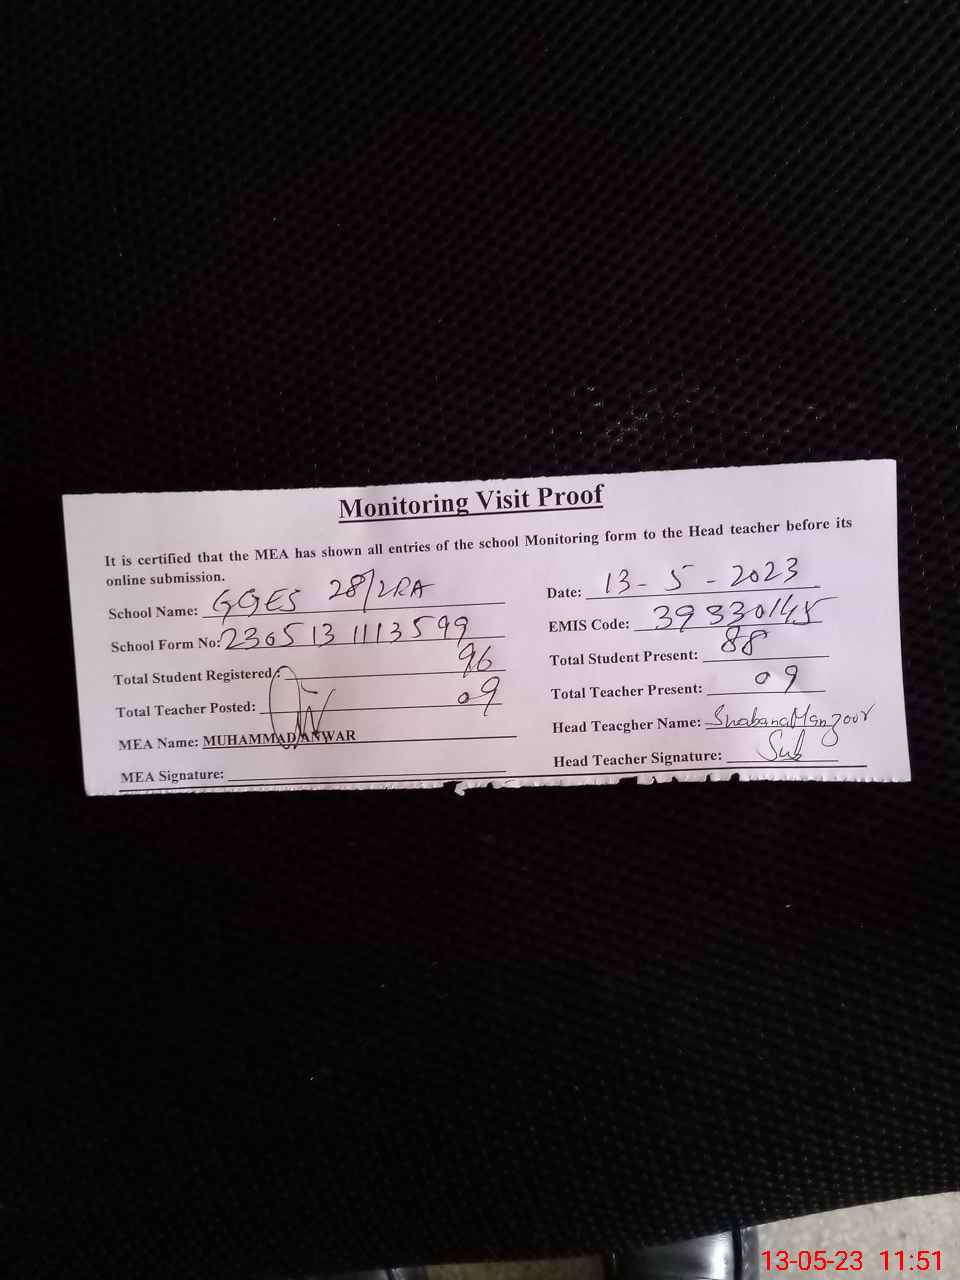 Monitoring Visit Proof
It is certified that the MEA has shown all entries of the school Monitoring form to the Head teacher before its
online submission.
School Name: GGES 28/2RA
Date: 13-5-2023
School Form No: 2305131113599
EMIS Code: 39330145
Total Student Registered: 96
Total Student Present: 88
Total Teacher Posted: 09
Total Teacher Present: 09
MEA Name: MUHAMMAD ANWAR
Head Teacgher Name: Shabana Manzoor
MEA Signature:
Head Teacher Signature:
13-05-23 11:51